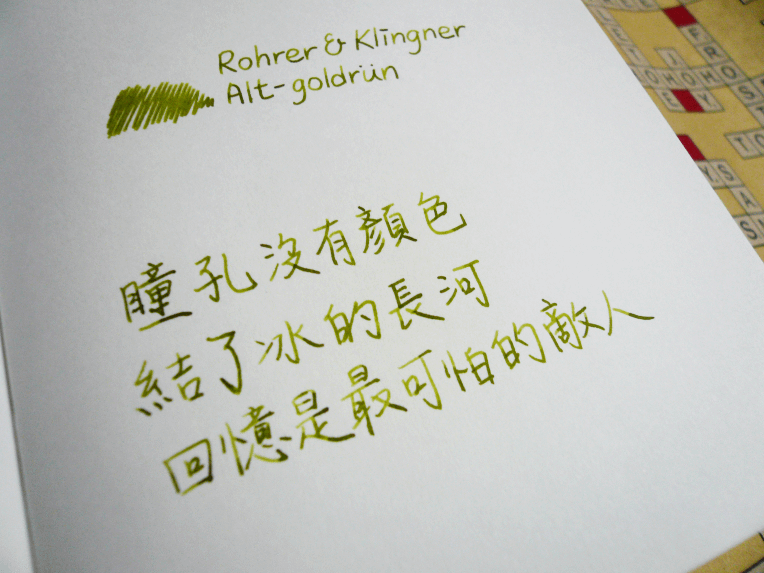 Rohrer & Klingner
Alt-goldrün
瞳孔沒有顏色
結了冰的長河
回憶是最可怕的敵人
FROST